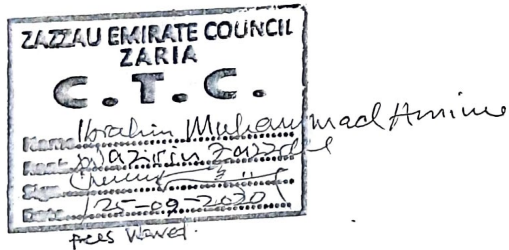 ZAZZAU EMIRATE COUNCIL
ZARIA
C.T.C.
Name Ibrahim Muhammad Aminu
Rank Wazirin Zazzau
Sign
Date 25-09-2020
fees waived.